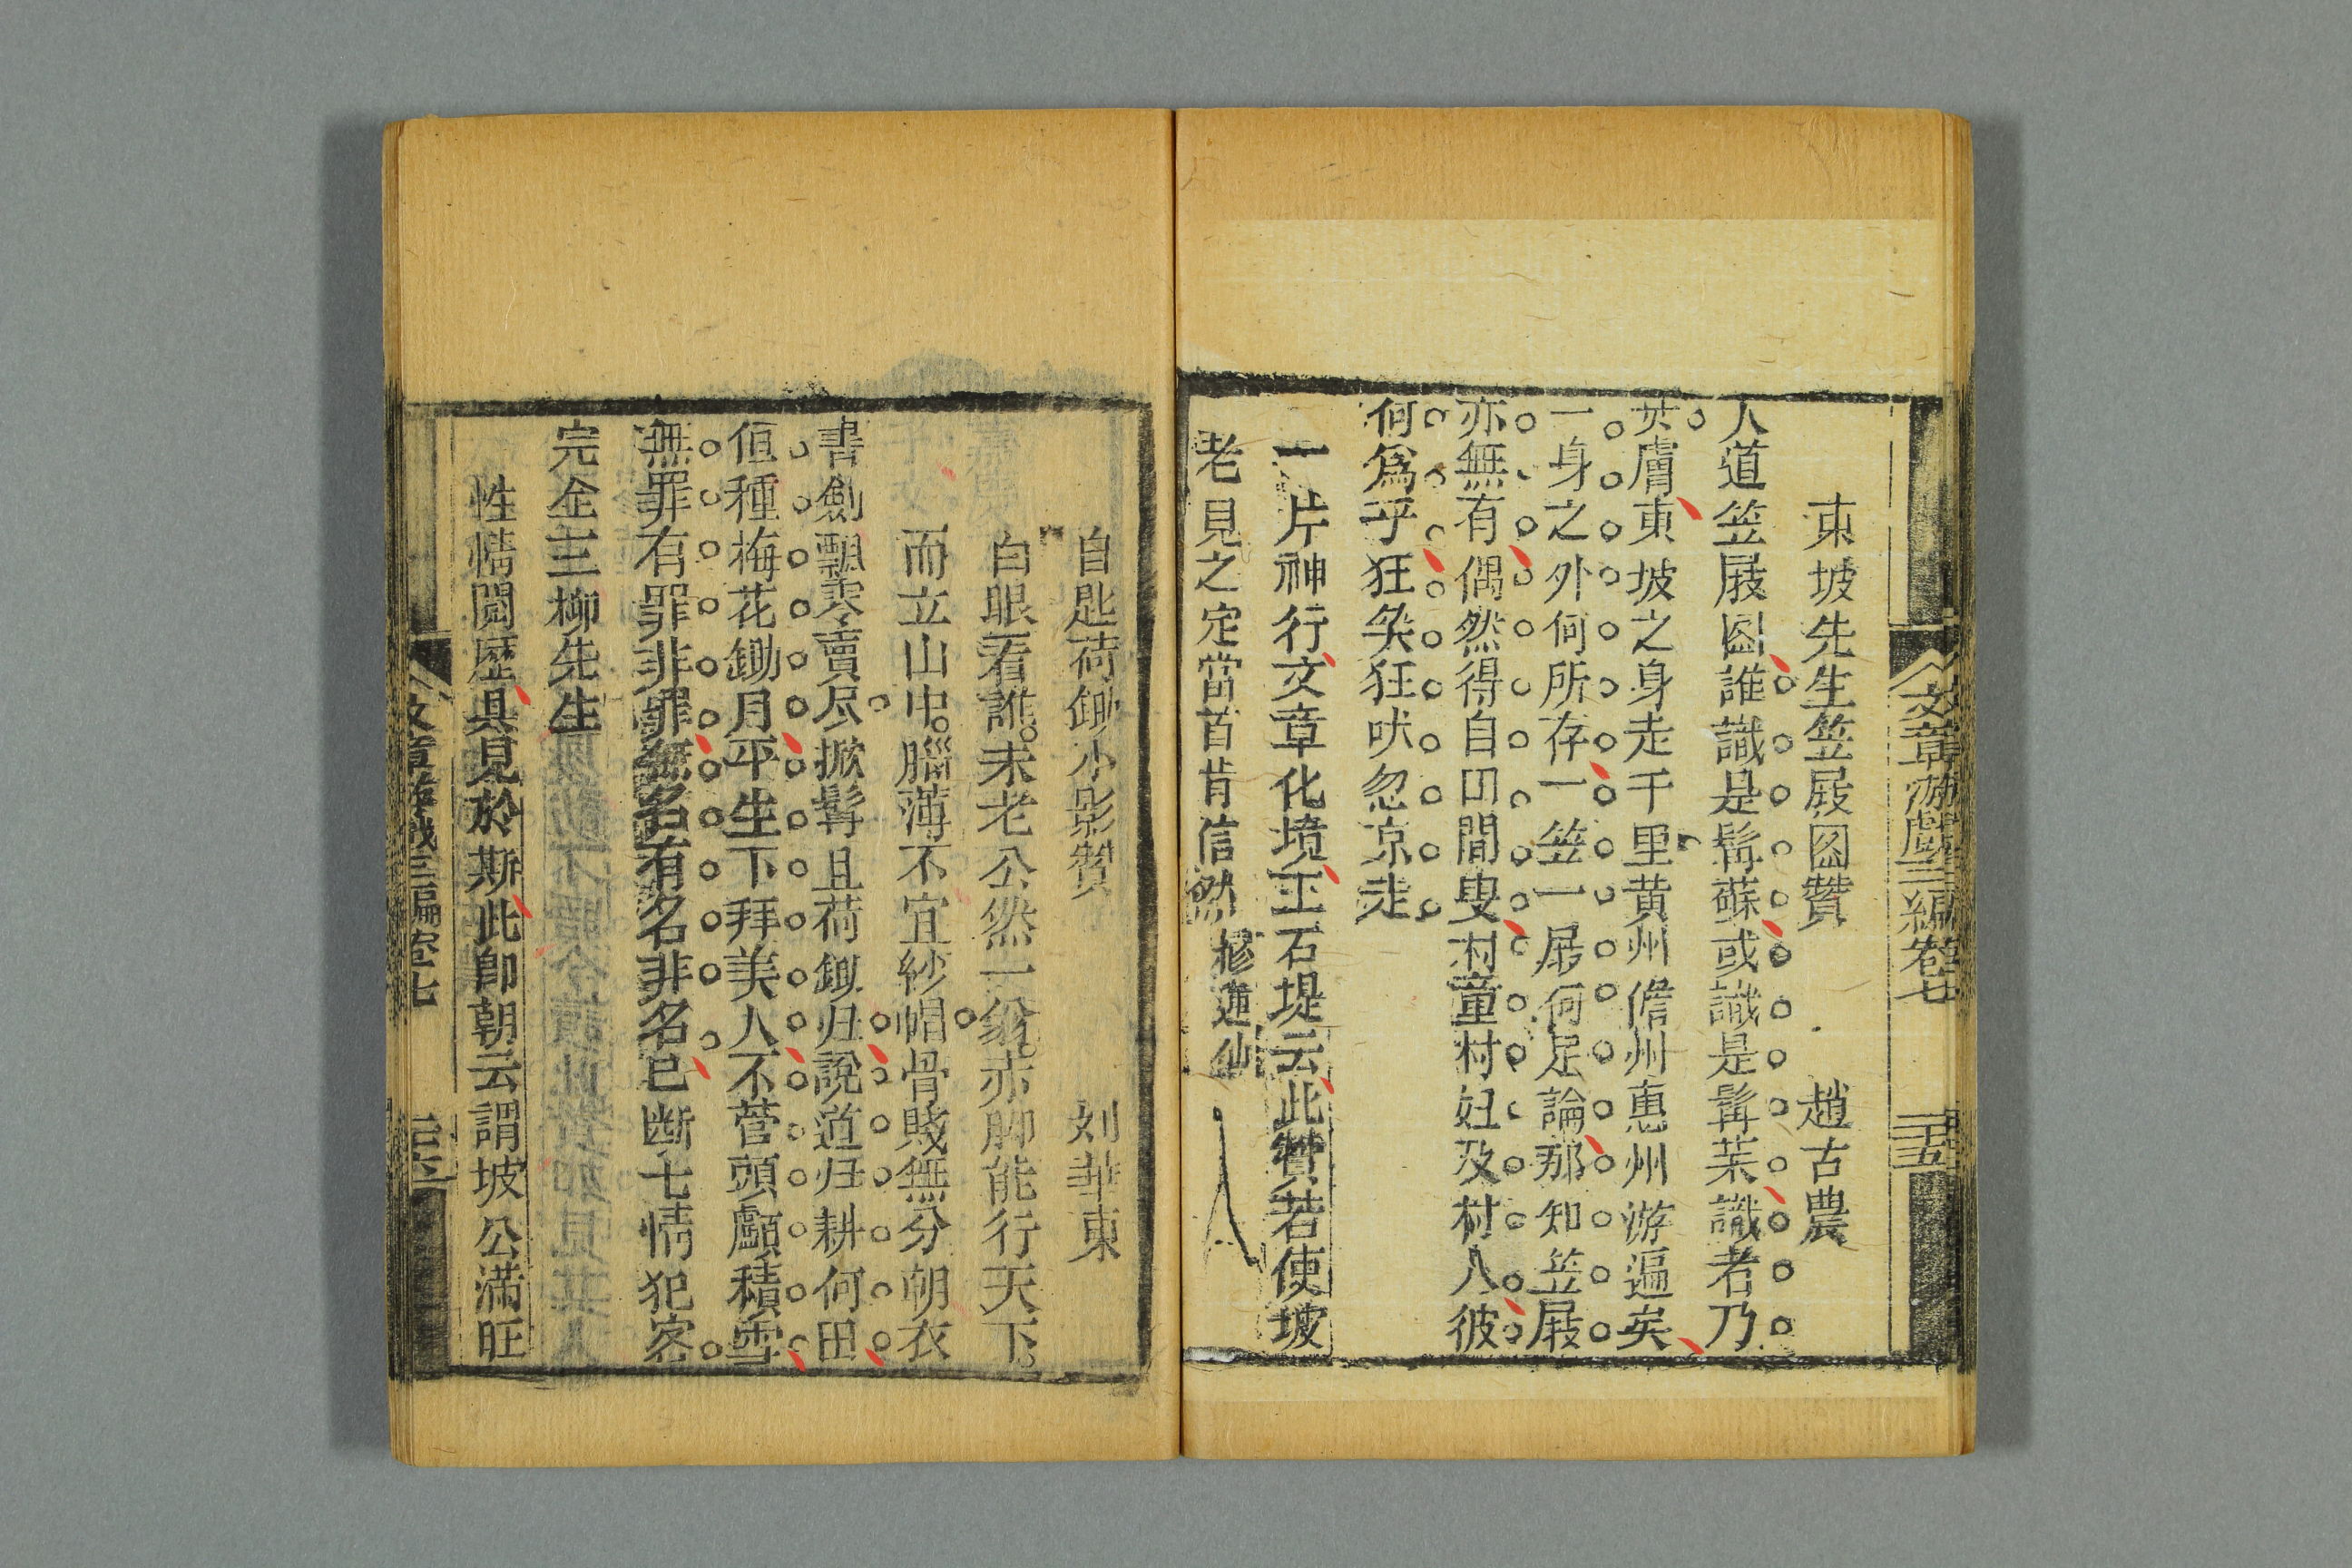 文章游戲三編卷七
二十五
東坡先生笠屐圖贊 趙古農
人道笠屐圖誰識是髯蘇或識是髯某識者乃
其膚東坡之身走千里黄州儋州惠州游遍矣
一身之外何所存一笠一屐何足論那知笠屐
亦無有偶然得自田間叟村童村妇及村人彼
何爲乎狂矣狂吠忽凉走
一片神行文章化境玉石堤云此贊若使坡
老見之定當首肯信然 繆蓮仙
自題荷鋤小影贊 刘華東
白眼看誰。未老公然一翁。赤脚能行天下。
而立山中。腦薄不宜紗帽骨賤無分朝衣
書劍飄零賣尽掀髯且荷鋤归說道归耕何田
值種梅花鋤月平生下拜美人不菅頭顱積雪
無罪有罪非罪無名有名非名已断七情犯客
完全三柳先生
性情閱歷具見於斯此卽朝云謂坡公滿肚
文章游戲三編卷七